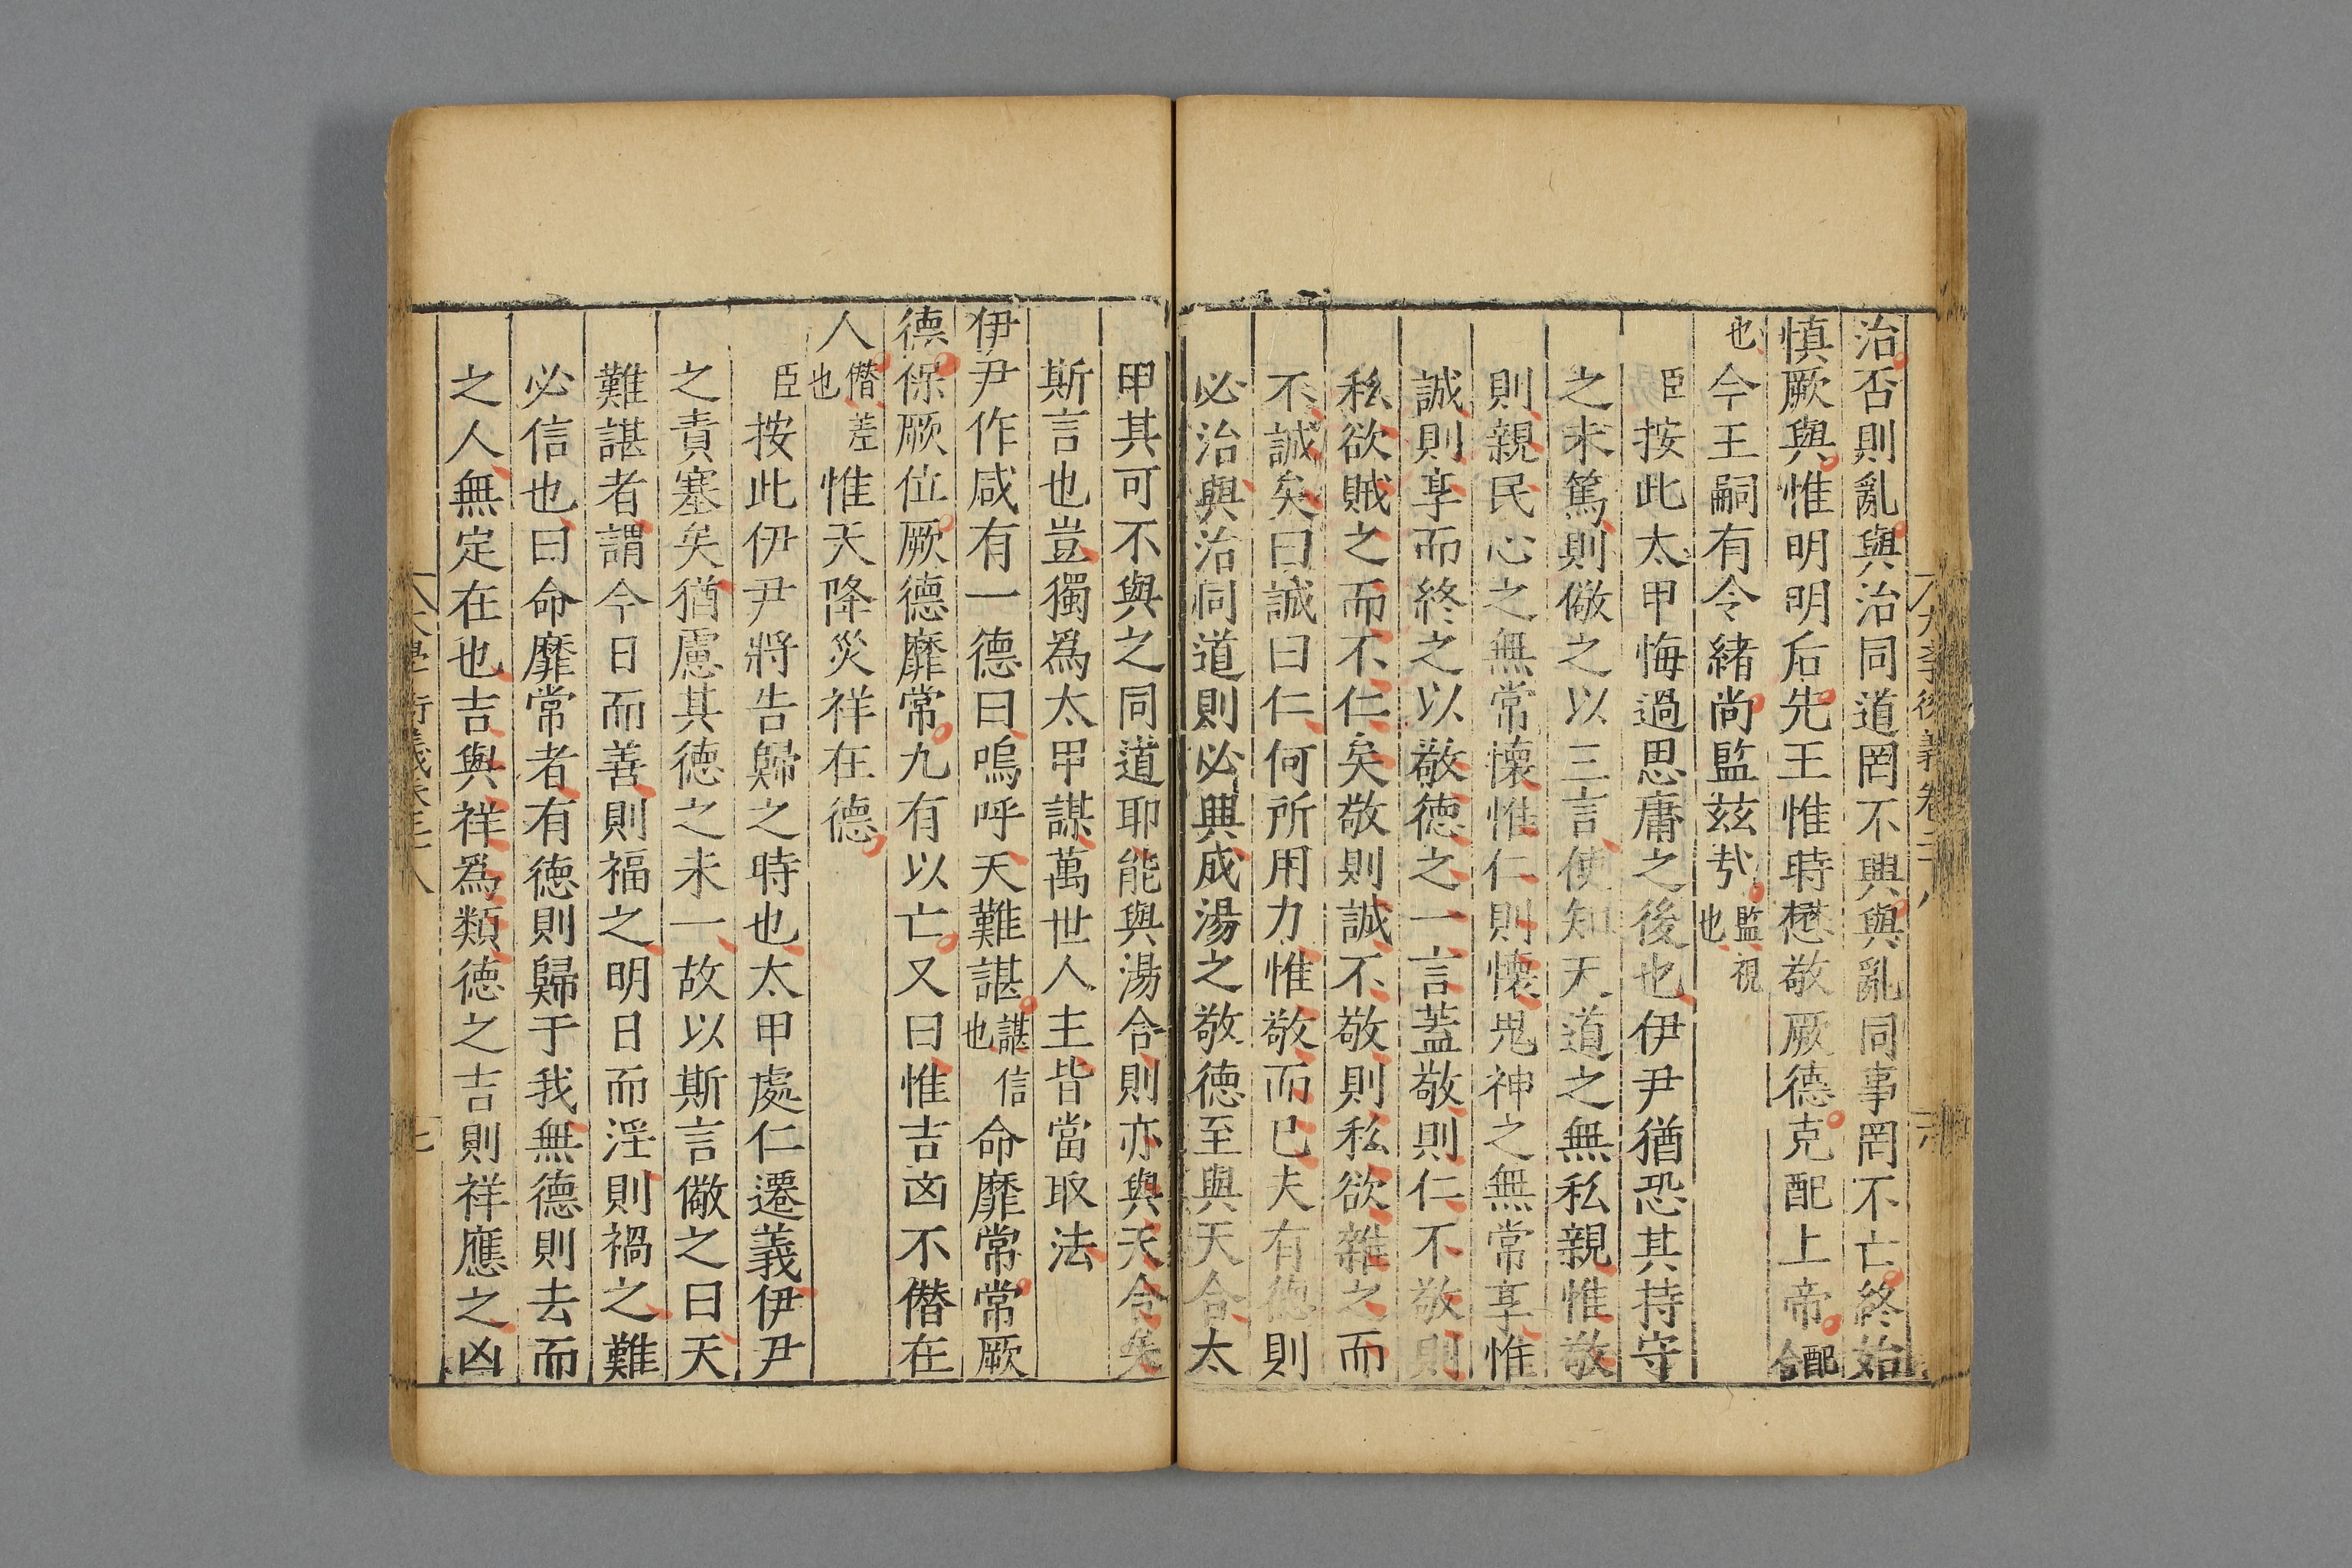 治否則亂與治同道罔不興與亂同事罔不亡終始
慎厥與惟明明后先王惟時懋敬厥德克配上帝配合
也今王嗣有令緒尚監茲㢤監視也
臣按此太甲悔過思庸之後也伊尹猶恐其持守
之未篤則儆之以三言使知天道之無私親惟敬
則親民心之無常懷惟仁則懷鬼神之無常享惟
誠則享而終之以敬德之一言蓋敬則仁不敬則
私欲賊之而不仁矣敬則誠不敬則私欲雜之而
不誠矣曰誠曰仁何所用力惟敬而已夫有德則
必治與治同道則必興成湯之敬德至與天合太
甲其可不與之同道耶能與湯合則亦與天合矣
斯言也豈獨爲太甲謀萬世人主皆當取法
伊尹作咸有一德曰嗚呼天難諶諶信也命靡常常厥
德保厥位厥德靡常九有以亡又曰惟吉凶不僭在
人僭差也惟天降災祥在德
臣按此伊尹將告歸之時也太甲處仁遷義伊尹
之責塞矣猶慮其德之未一故以斯言儆之曰天
難諶者謂今日而善則福之明日而淫則禍之難
必信也曰命靡常者有德則歸于我無德則去而
之人無定在也吉與祥爲類德之吉則祥應之凶